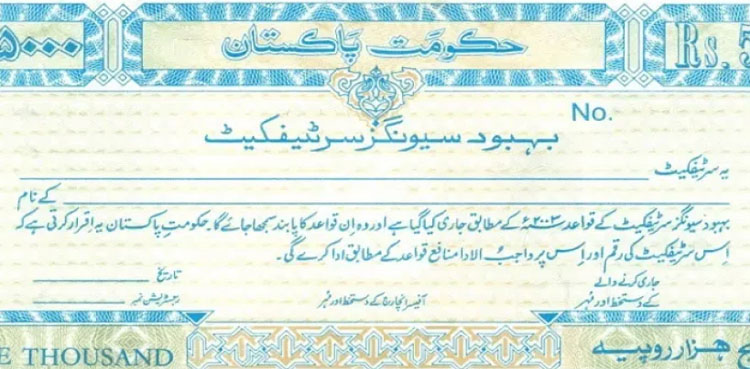 ۵۰۰۰
حکومت پاکستان
Rs. 5
No.
بہبود سیونگز سرٹیفکیٹ
یہ سرٹیفکیٹ
کے نام
بہبود سیونگز سرٹیفکیٹ کے قواعد ۲۰۰۳ء کے مطابق جاری کیا گیا ہے اور وہ ان قواعد کا پابند سمجھا جائے گا۔ حکومتِ پاکستان یہ اقرار کرتی ہے کہ
اس سرٹیفکیٹ کی رقم اور اس پر واجب الادا منافع قواعد کے مطابق ادا کرے گی۔
تاریخ
جاری کرنے والے
رجسٹریشن نمبر
آفیسر انچارج کے دستخط اور مُہر
کے دستخط اور مُہر
E THOUSAND
چ ہزار روپیے